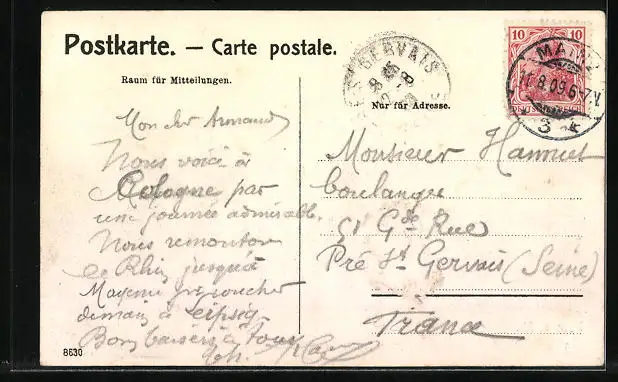 Postkarte. — Carte postale.
Raum für Mitteilungen.
Nur für Adresse.
GERVAIS
10 10
MAINZ
11.8.09.6-7V.
3 k
Mon cher Armand
Nous voici à
Cologne par
une journée admirable.
Nous remontons
le Rhin jusqu'à
Mayence pr coucher
demain à Leipzig.
Bons baisers à tous
Monsieur Hannuet
boulanger
51 Gde Rue
Pré St Gervais (Seine)
France
8630